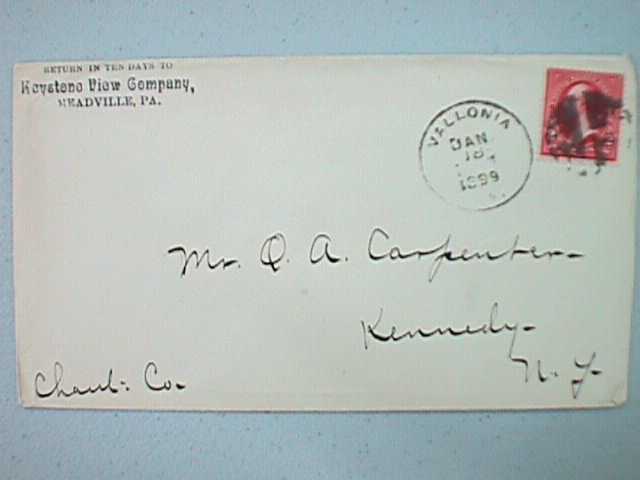 RETURN IN TEN DAYS TO
Keystone View Company,
MEADVILLE, PA.
VALLONIA
JAN
18
1899
Mr. Q. A. Carpenter
Kennedy
N. Y.
Chaut. Co.